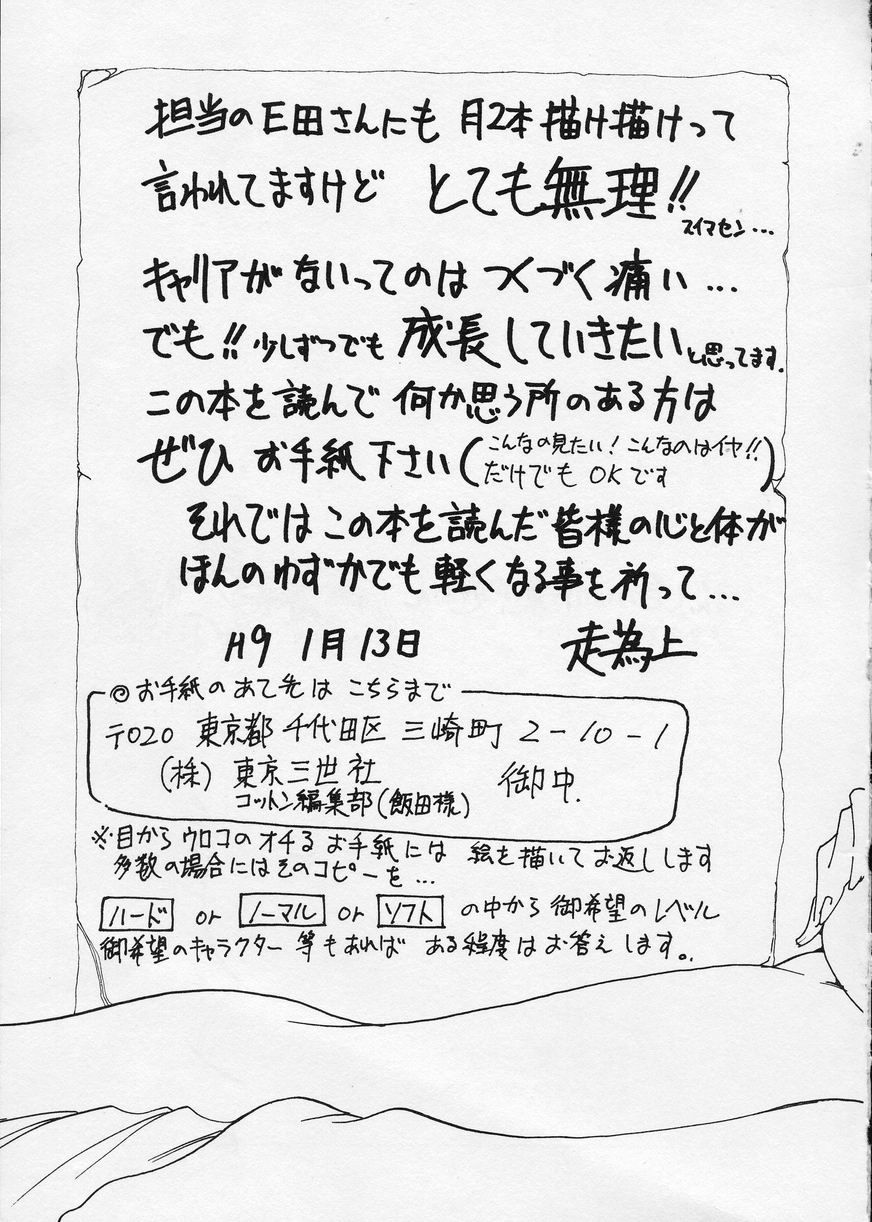 担当のE田さんにも 月2本描け描けって
言われてますけど とても無理!!
スイマセン...
キャリアがないってのは つくづく痛い...
でも!! 少しずつでも 成長していきたいと思ってます.
この本を読んで 何か思う所のある方は
ぜひ お手紙下さい(こんなの見たい! こんなのはイヤ!!
だけでも OKです)
それでは この本を読んだ皆様の心と体が
ほんのわずかでも 軽くなる事を祈って...
H9 1月13日 走為上
◎お手紙の あて先は こちらまで
〒020 東京都 千代田区 三崎町 2-10-1
(株) 東京三世社 御中.
コットン編集部(飯田様)
※目から ウロコの オチる お手紙には 絵を描いて お返しします
多数の場合には そのコピーを...
ハード or ノーマル or ソフト の中から 御希望の レベル
御希望のキャラクター 等もあれば ある程度は お答えします。